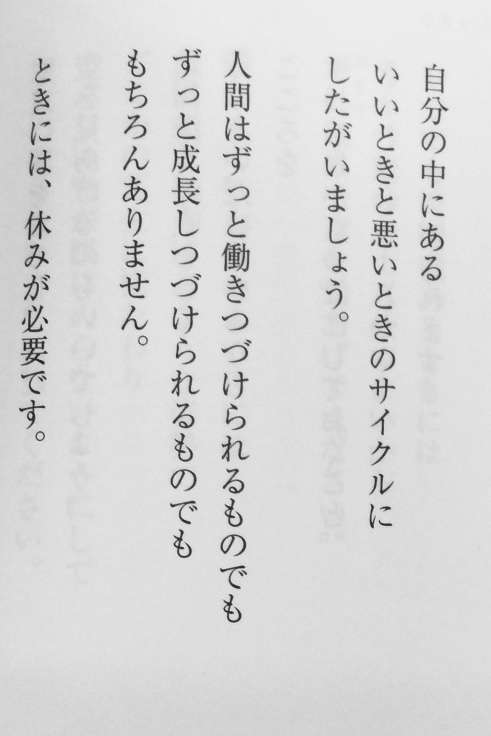 自分の中にある
いいときと悪いときのサイクルに
したがいましょう。
人間はずっと働きつづけられるものでも
ずっと成長しつづけられるものでも
もちろんありません。
ときには、休みが必要です。